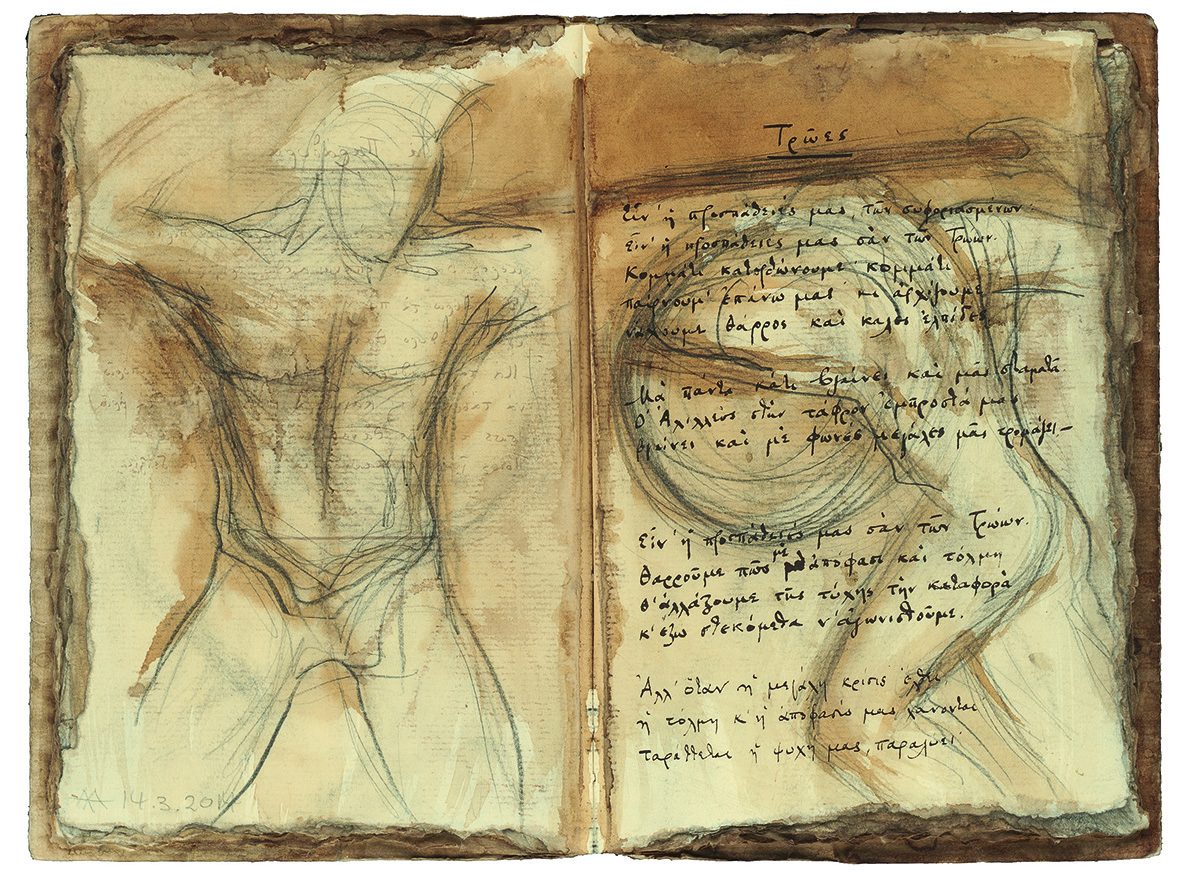 14.3.201
Τρῶες
Εἶν' ἡ προσπάθειές μας, τῶν συφοριασμένων·
Εἶν' ἡ προσπάθειες μας σὰν τῶν Τρώων.
Κομμάτι κατορθώνουμε· κομμάτι
παίρνουμ' ἐπάνω μας· κι ἀρχίζουμε
νἄχουμε θάρρος καὶ καλὲς ἐλπίδες.
Μὰ πάντα κάτι βγαίνει καὶ μᾶς σταματᾶ.
Ὁ Ἀχιλλεὺς στὴν τάφρον ἐμπροστά μας
βγαίνει καὶ μὲ φωνὲς μεγάλες μᾶς τρομάζει—
Εἶν' ἡ προσπάθειές μας σὰν τῶν Τρώων.
θαρροῦμε πῶς μὲ ἀπόφασι καὶ τόλμη
θ' ἀλλάξουμε τῆς τύχης τὴν καταφορά
κ' ἔξω στεκόμεθα ν' ἀγωνισθοῦμε.
Ἀλλ' ὅταν ἡ μεγάλη κρίσις ἔλθει
ἡ τόλμη κ' ἡ ἀπόφασίς μας χάνονται
ταράττεται ἡ ψυχή μας, παραλύει·